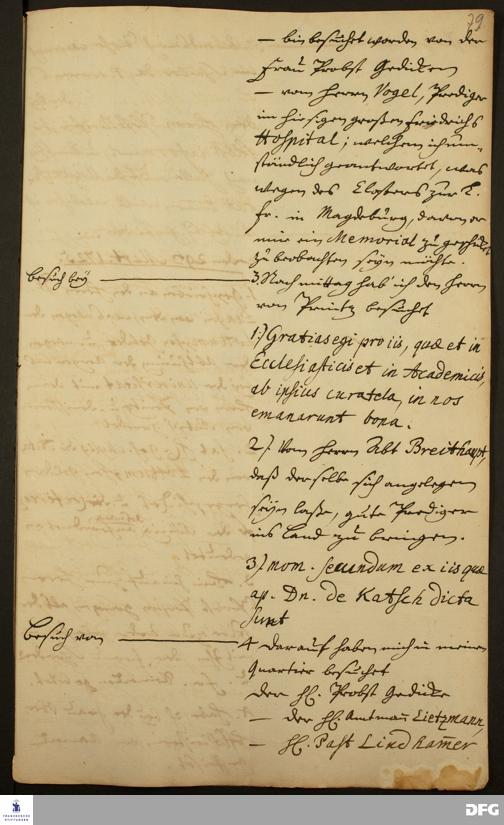 79
— bin besuchet worden von der
Frau Probst Gedicken
— vom Herrn Vogel, Prediger
im hiesigen großen Friedrichs
Hospital; welchem ich um-
ständlich geantwortet, was
wegen des Closters zur L.
Fr. in Magdeburg, davon er
mir ein Memorial zu geschickt
zu beobachten seyn möchte.
Besuch bey
3. Nach mittag hab' ich den Herrn
von Printz besuchet
1.) Gratias egi pro iis, quæ et in
Ecclesiasticis et in Academicis,
ab ipsius curatela, in nos
emanarunt bona.
2.) Vom Herrn Abt Breithaupt,
daß derselbe sich angelegen
seyn laße, gute Prediger
ins Land zu bringen.
3.) mom. secundum ex iis quæ
ap. Dn. de Katsch dicta
sunt
Besuch von
4. darauf haben mich in meinem
Quartier besuchet
der H. Probst Gedicke
— der H. Amtmañ Lietzmann,
— H. Past Lindham̃er
FRANCKESCHE
STIFTUNGEN
DFG